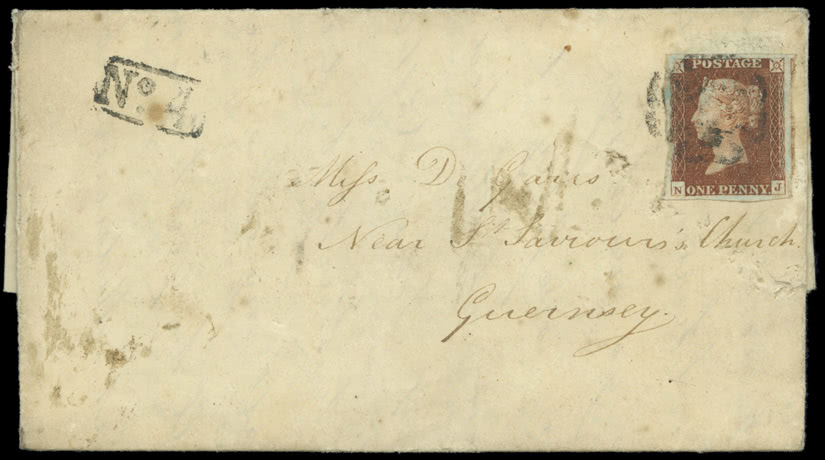 No. 4
POSTAGE
N ONE PENNY J
Miss D.
Near St. Saviour's Church
Guernsey.